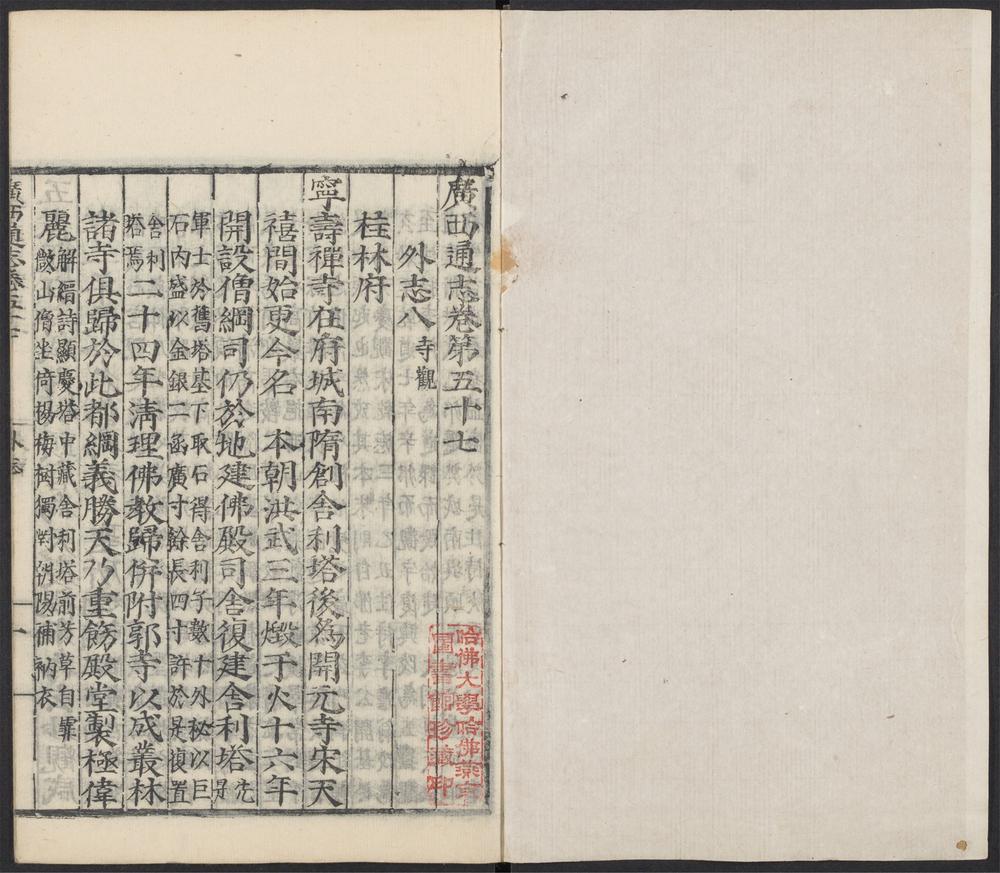 廣西通志卷第五十七
外志八 寺觀
桂林府
寧壽禪寺在府城南隋創舍利塔後為開元寺宋天
禧間始更今名 本朝洪武三年燬于火十六年
開設僧綱司仍於地建佛殿司舍復建舍利塔先是
軍士於舊塔基下取石得舍利子數十外秘以巨
石内盛以金銀二函廣寸餘長四寸許於是復置
舍利塔焉二十四年清理佛教歸併附郭寺以成叢林
諸寺俱歸於此都綱義勝天乃重飾殿堂製極偉
麗解縉詩顯慶塔中藏舍利塔前芳草自霏
微山僧坐倚楊梅樹獨對朝陽補衲衣
廣西通志卷五十七
外志
一
哈佛大學哈佛燕京
圖書館珍藏印